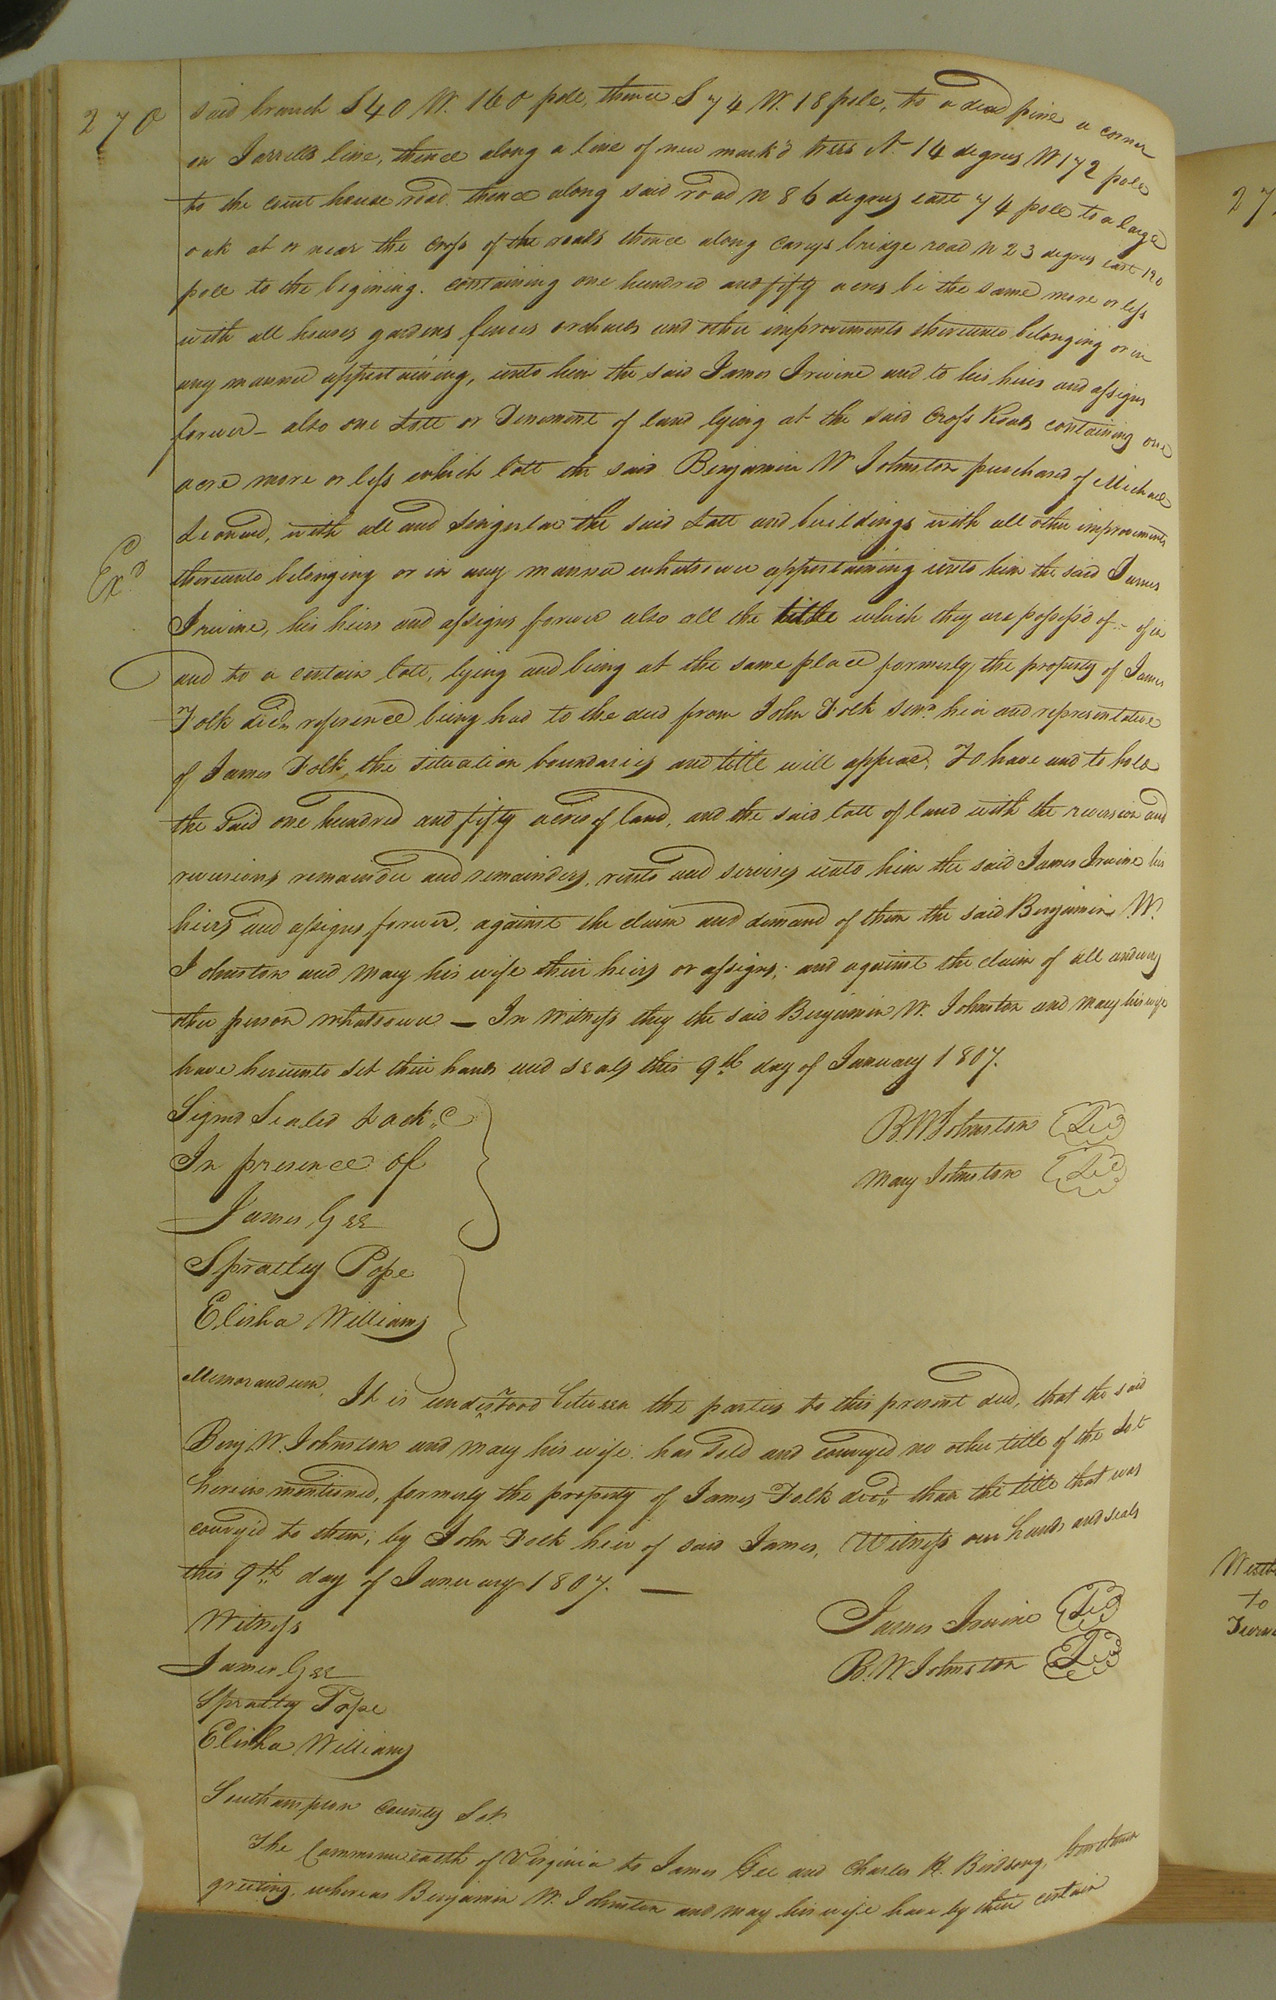 270
said branch S 40 W. 160 pole, thence S 74 W. 18 pole, to a dead pine a corner
on Jarrells line, thence along a line of new mark'd trees N. 14 degrees W 172 pole
to the court house road thence along said road N 86 degrees east 74 pole to a large
oak at or near the cross of the roads thence along Careys bridge road N 23 degrees east 190
pole to the begining. containing one hundred and fifty acres be the same more or less
with all houses gardens fences orchards and other improvements thereunto belonging or in
any manner appertaining, unto him the said James Irvine and to his heirs and assigns
forever – also one Lott or Tenement of land lying at the said Cross Roads containing one
acre more or less which lott the said Benjamin W Johnston purchased of Michael
Leonard, with all and singular the said Lott and buildings with all other improvements
Exd
thereunto belonging or in any manner whatsoever appertaining unto him the said James
Irvine, his heirs and assigns forever also all the title which they are possess'd of – of in
and to a certain lott, lying and being at the same place formerly the property of James
Folk decd. reference being had to the deed from John Folk senr. heir and representative
of James Folk, the situation boundaries and title will appear. To have and to hold
the said one hundred and fifty acres of land, and the said lott of land with the reversion and
reversions remainder and remainders, rents and services unto him the said James Irvine his
heirs and assigns forever, against the claim and demand of them the said Benjamin W.
Johnston and Mary his wife their heirs or assigns; and against the claim of all and every
other person whatsoever — In Witness they the said Benjamin W. Johnston and Mary his wife
have hereunto set their hands and seals this 9th day of January 1807.
Signd Sealed & ack. &c
B W Johnston
In presence of
Mary Johnston
James Gee
Spratley Pope
Elisha Williams
Memorandum. It is understood between the parties to this present deed, that the said
Benj W. Johnston and Mary his wife: has sold and conveyed no other title of the Lot
herein mentioned, formerly the property of James Folk decd. than the title that was
convey'd to them; by John Folk heir of said James, Witness our hands and seals
this 9th day of January 1807. —
Witness
James Irvine
James Gee
B. W. Johnston
Spratley Pope
Elisha Williams
Southampton County Sct.
The Commonwealth of Virginia to James Gee and Charles H. Birdsong, Gentlemen
greeting, whereas Benjamin W. Johnston and Mary his wife have by their certain
27
to